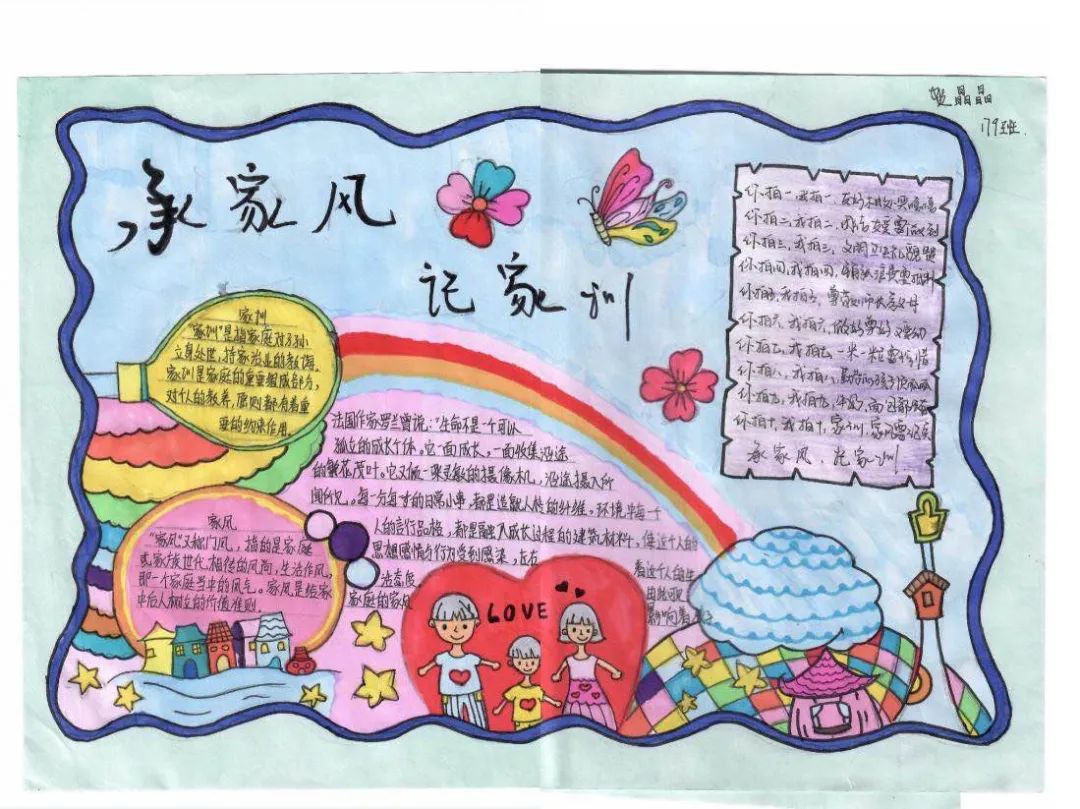 晶晶
179班
承家风
记家训
你拍一,我拍一,
你拍二,我拍二,
你拍三,我拍三,文明
你拍四,我拍四,
你拍五,我拍五,尊敬师长孝父母
你拍六,我拍六,做好
你拍七,我拍七,一米一粒要珍惜
你拍八,我拍八,勤劳的孩子
你拍九,我拍九,牛奶,面包
你拍十,我拍十,家训,家风要记真
承家风、记家训
家训
“家训”是指家庭对子孙
立身处世,持家治业的教诲。
家训是家庭的重要组成部分,
对个人的教养,原则都有着重
要的约束作用。
法国作家罗兰曾说:“生命不是一个可以
孤立的成长个体,它一面成长,一面收集沿途
的繁花茂叶。它又似一架灵敏的摄像机,沿途摄入所
闻所见。每一分每一寸的日常小事,都是造就人格的纤维。环境中每一个
人的言行品格,都是融入成长过程的建筑材料,使这个人的
思想感情与行为受到感染,左右
着这个人的生
活态度
家庭的家风
影响着孩子
家风
“家风”又称门风,指的是家庭
或家族世代相传的风尚,生活作风,
即一个家庭当中的风气。家风是给家
中后人树立的价值准则。
LOVE